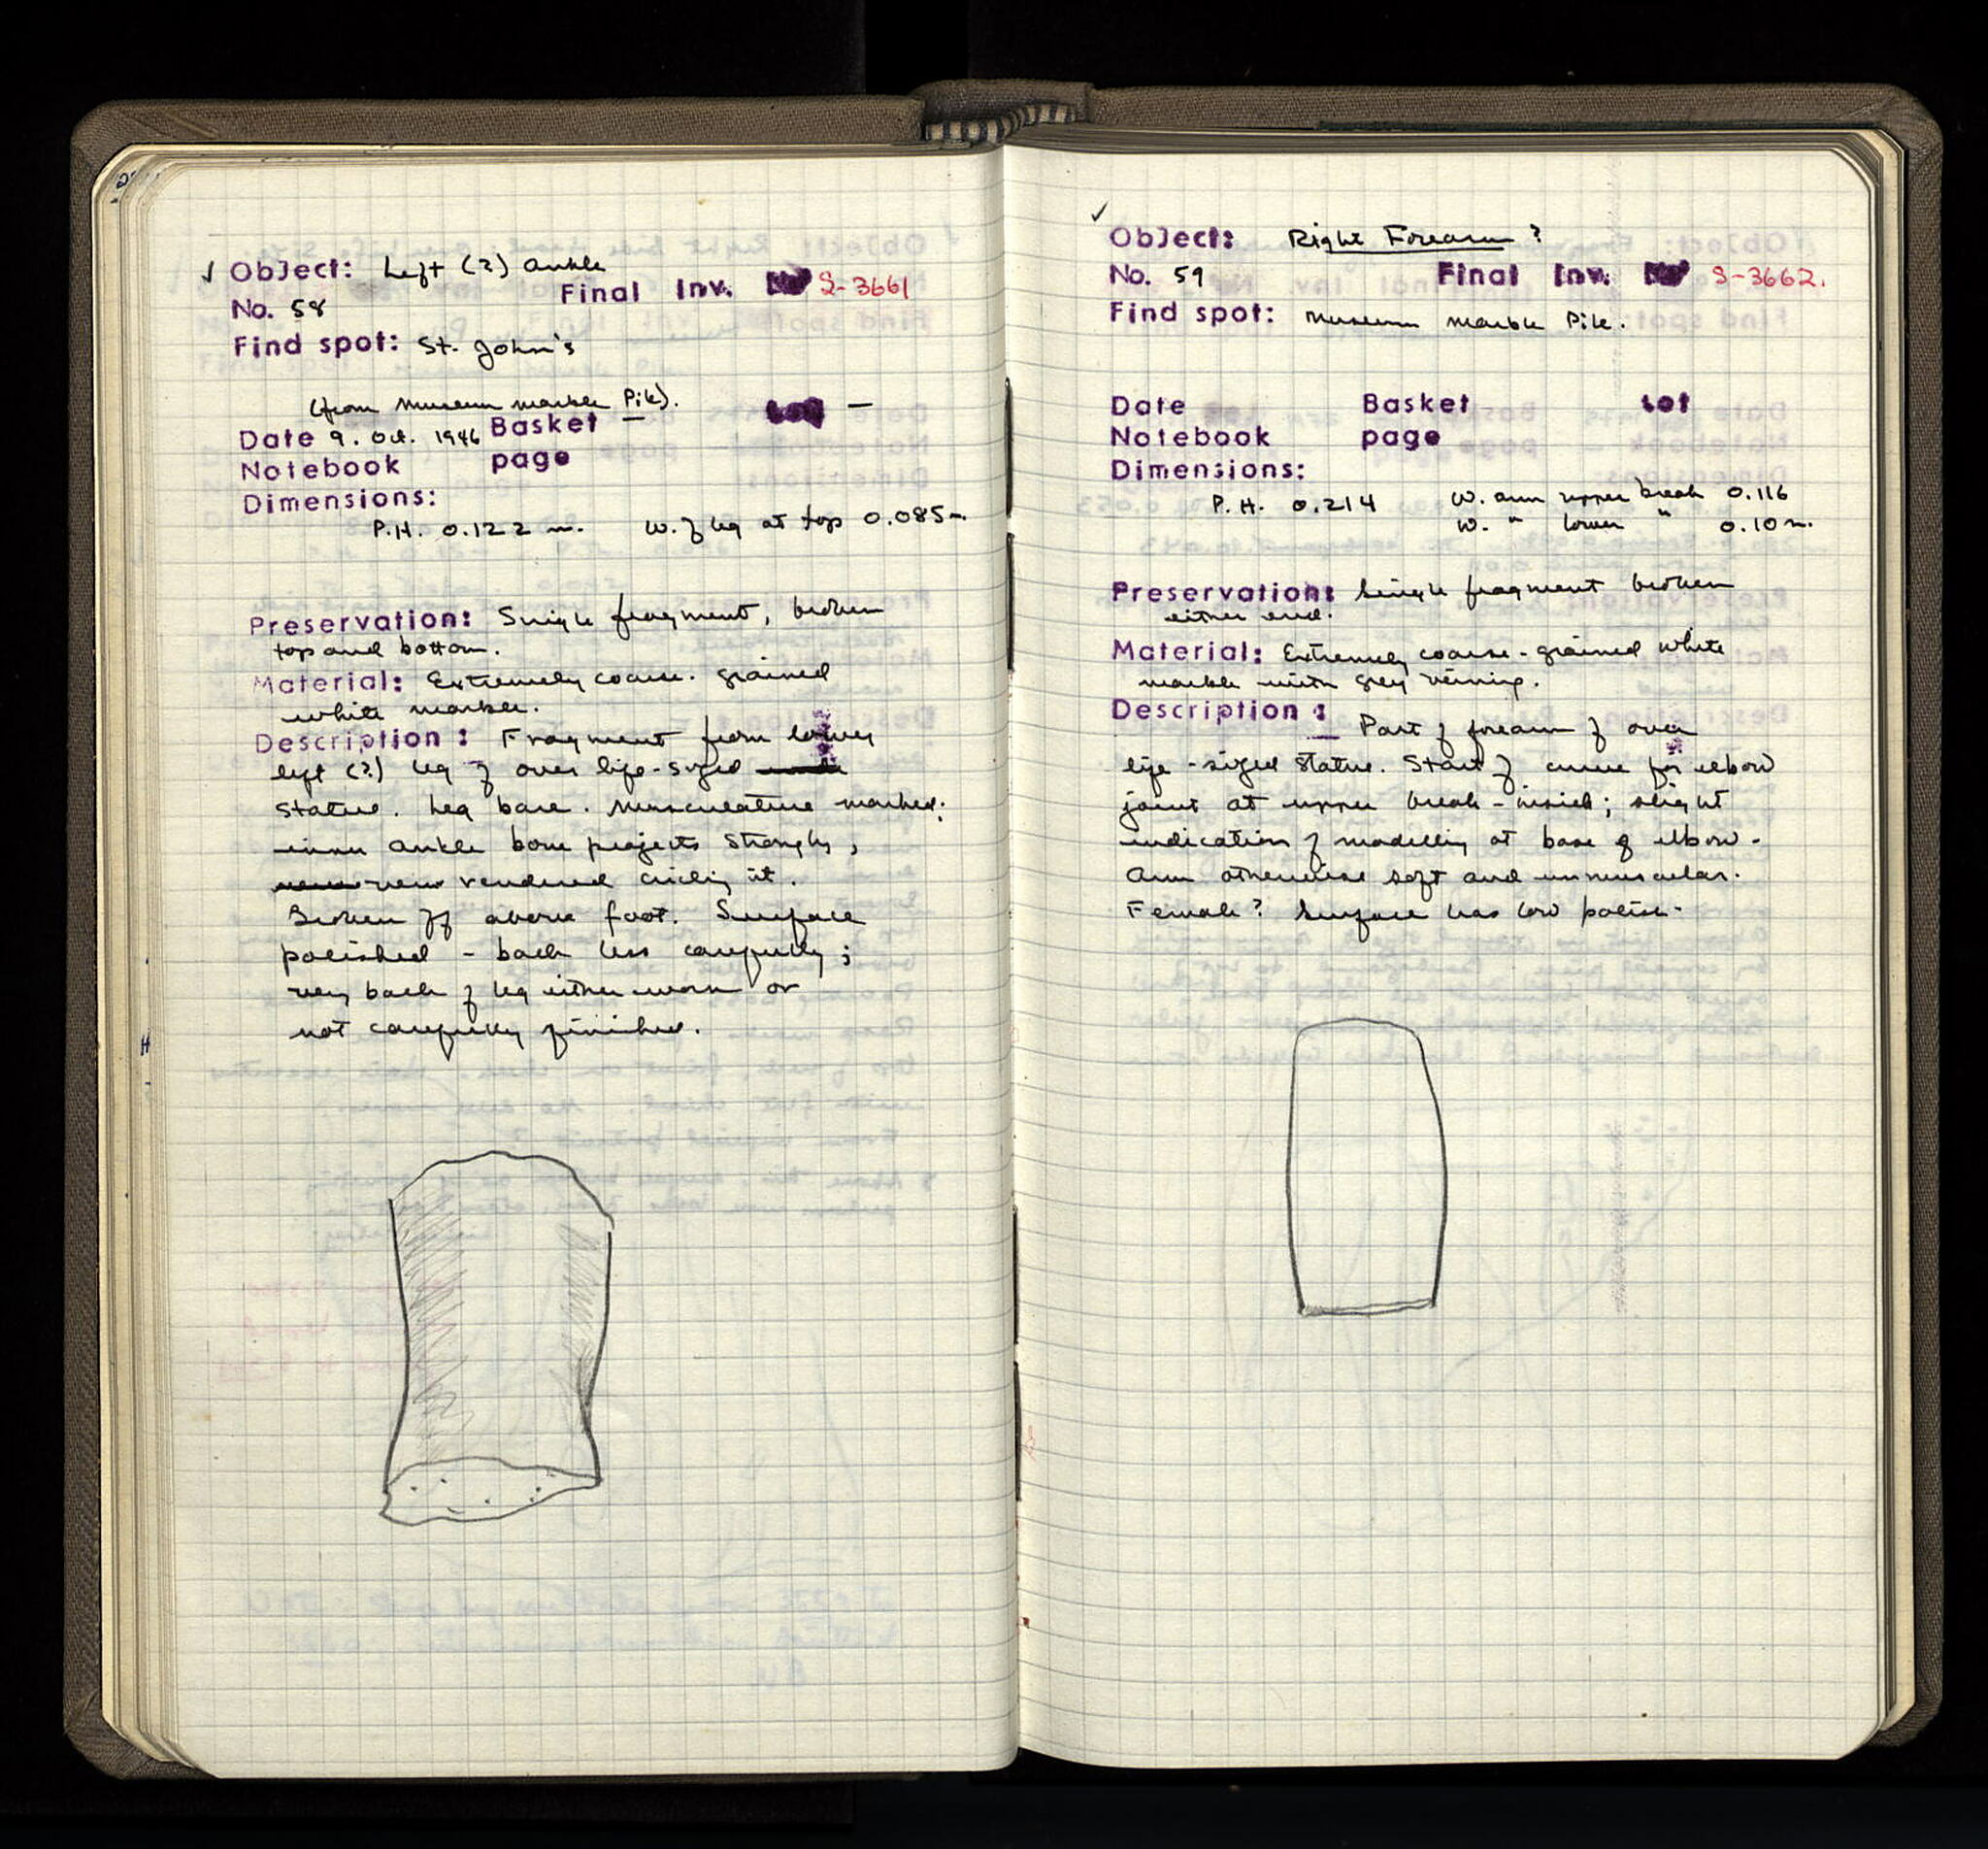 ✓ Object: Left (?) ankle
Final Inv. No S-3661
No. 58
Find spot: St. John's
(from Museum marble Pile).
Date 9. Oct. 1946 Basket — Lot —
Notebook page
Dimensions:
P.H. 0.122 m. W. of leg at top 0.085 m.
Preservation: Single fragment, broken
top and bottom.
Material: Extremely coarse-grained
white marble.
Description: Fragment from lower
left (?) leg of over life-sized
statue. Leg bare. Musculature marked;
inner ankle bone projects strongly;
rendered circling it.
Broken off above foot. Surface
polished - back less carefully;
very back of leg either worn or
not carefully finished.
✓
Object: Right Forearm?
No. 59 Final Inv. No S-3662.
Find spot: Museum marble Pile.
Date Basket Lot
Notebook page
Dimensions:
P.H. 0.214 W. arm upper break 0.116
W. " lower " 0.10 m.
Preservation: Single fragment broken
either end.
Material: Extremely coarse-grained white
marble with grey veining.
Description: Part of forearm of over
life-sized statue. Start of curve for elbow
joint at upper break - inside; slight
indication of modelling at base of elbow.
Arm otherwise soft and unmuscular.
Female? Surface has low polish.